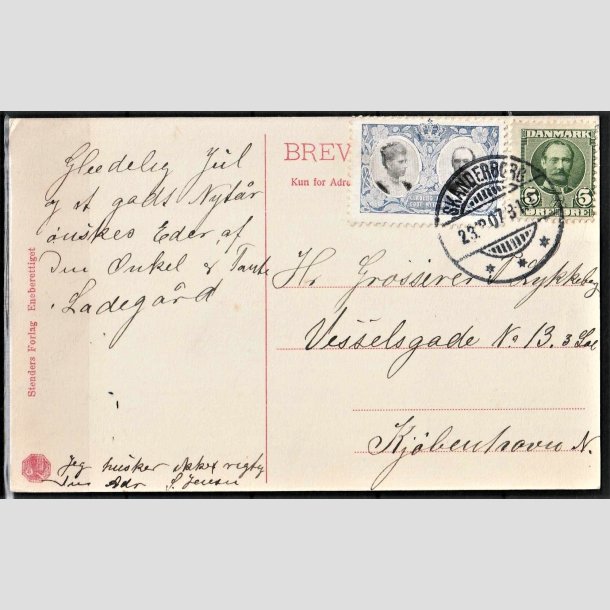 BREV
Kun for Adre
DANMARK
5 5
ØRE ØRE
SKANDERBORG
23.12.07. 8
Glædelig Jul
og et godt Nytår
ønskes Eder af
din Onkel & Tante
Ladegård
Jeg husker ikke rigtig
din Adr S. Jensen
Hr Grosserer Lykkeberg
Vesselsgade No 13. 3 Sal
Kjøbenhavn N.
Stenders Forlag Eneberettiget